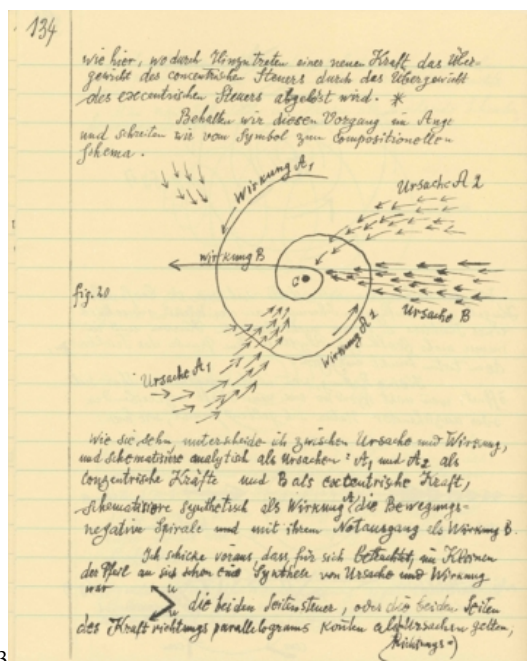 134
wie hier, wo durch Hinzutreten einer neuen Kraft das Über-
gewicht des concentrischen Steuers durch das Übergewicht
des excentrischen Steuers abgelöst wird. *
Behalten wir diesen Vorgang im Auge
und schreiten wir vom Symbol zum compositionellen
Schema.
Wirkung A1
Ursache A2
wirkung B
C
fig. 20
Ursache B
Wirkung A2
Ursache A1
Wie sie sehn, unterscheide ich zwischen Ursache und Wirkung,
und schematisiere analytisch als Ursachen: A1 und A2 als
conzentrische Kräfte und B als excentrische Kraft,
schematisiere synthetisch als Wirkung A die Bewegungs-
negative Spirale und mit ihrem Notausgang als Wirkung B.
Ich schicke voraus, dass, für sich betrachtet, im Kleinen
der Pfeil an sich schon eine Synthese von Ursache und Wirkung
war
u
u
die beiden Seitensteuer, oder die beiden Seiten
des Kraftrichtungsparallelograms konnten als Ursachen gelten,
Richtungs=
3